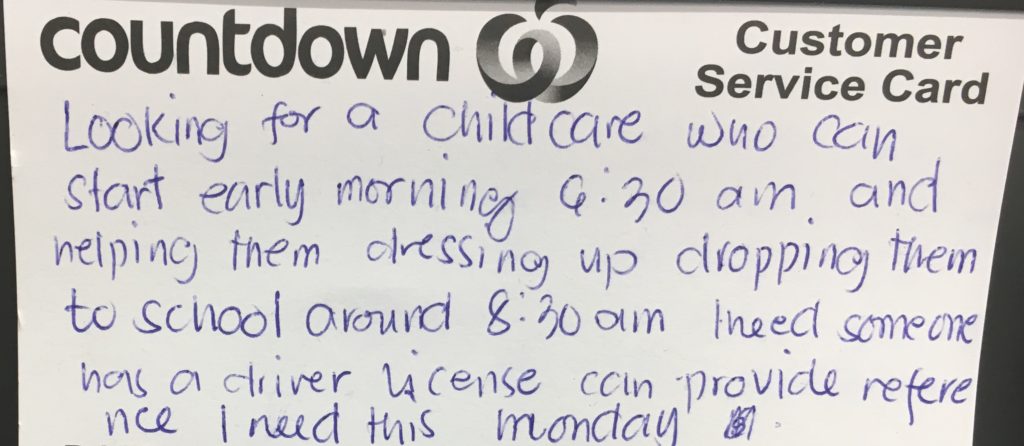 countdown
Customer
Service Card
Looking for a child care who can
start early morning 6:30 am. and
helping them dressing up dropping them
to school around 8:30 am I need someone
has a driver license can provide refere
nce I need this monday